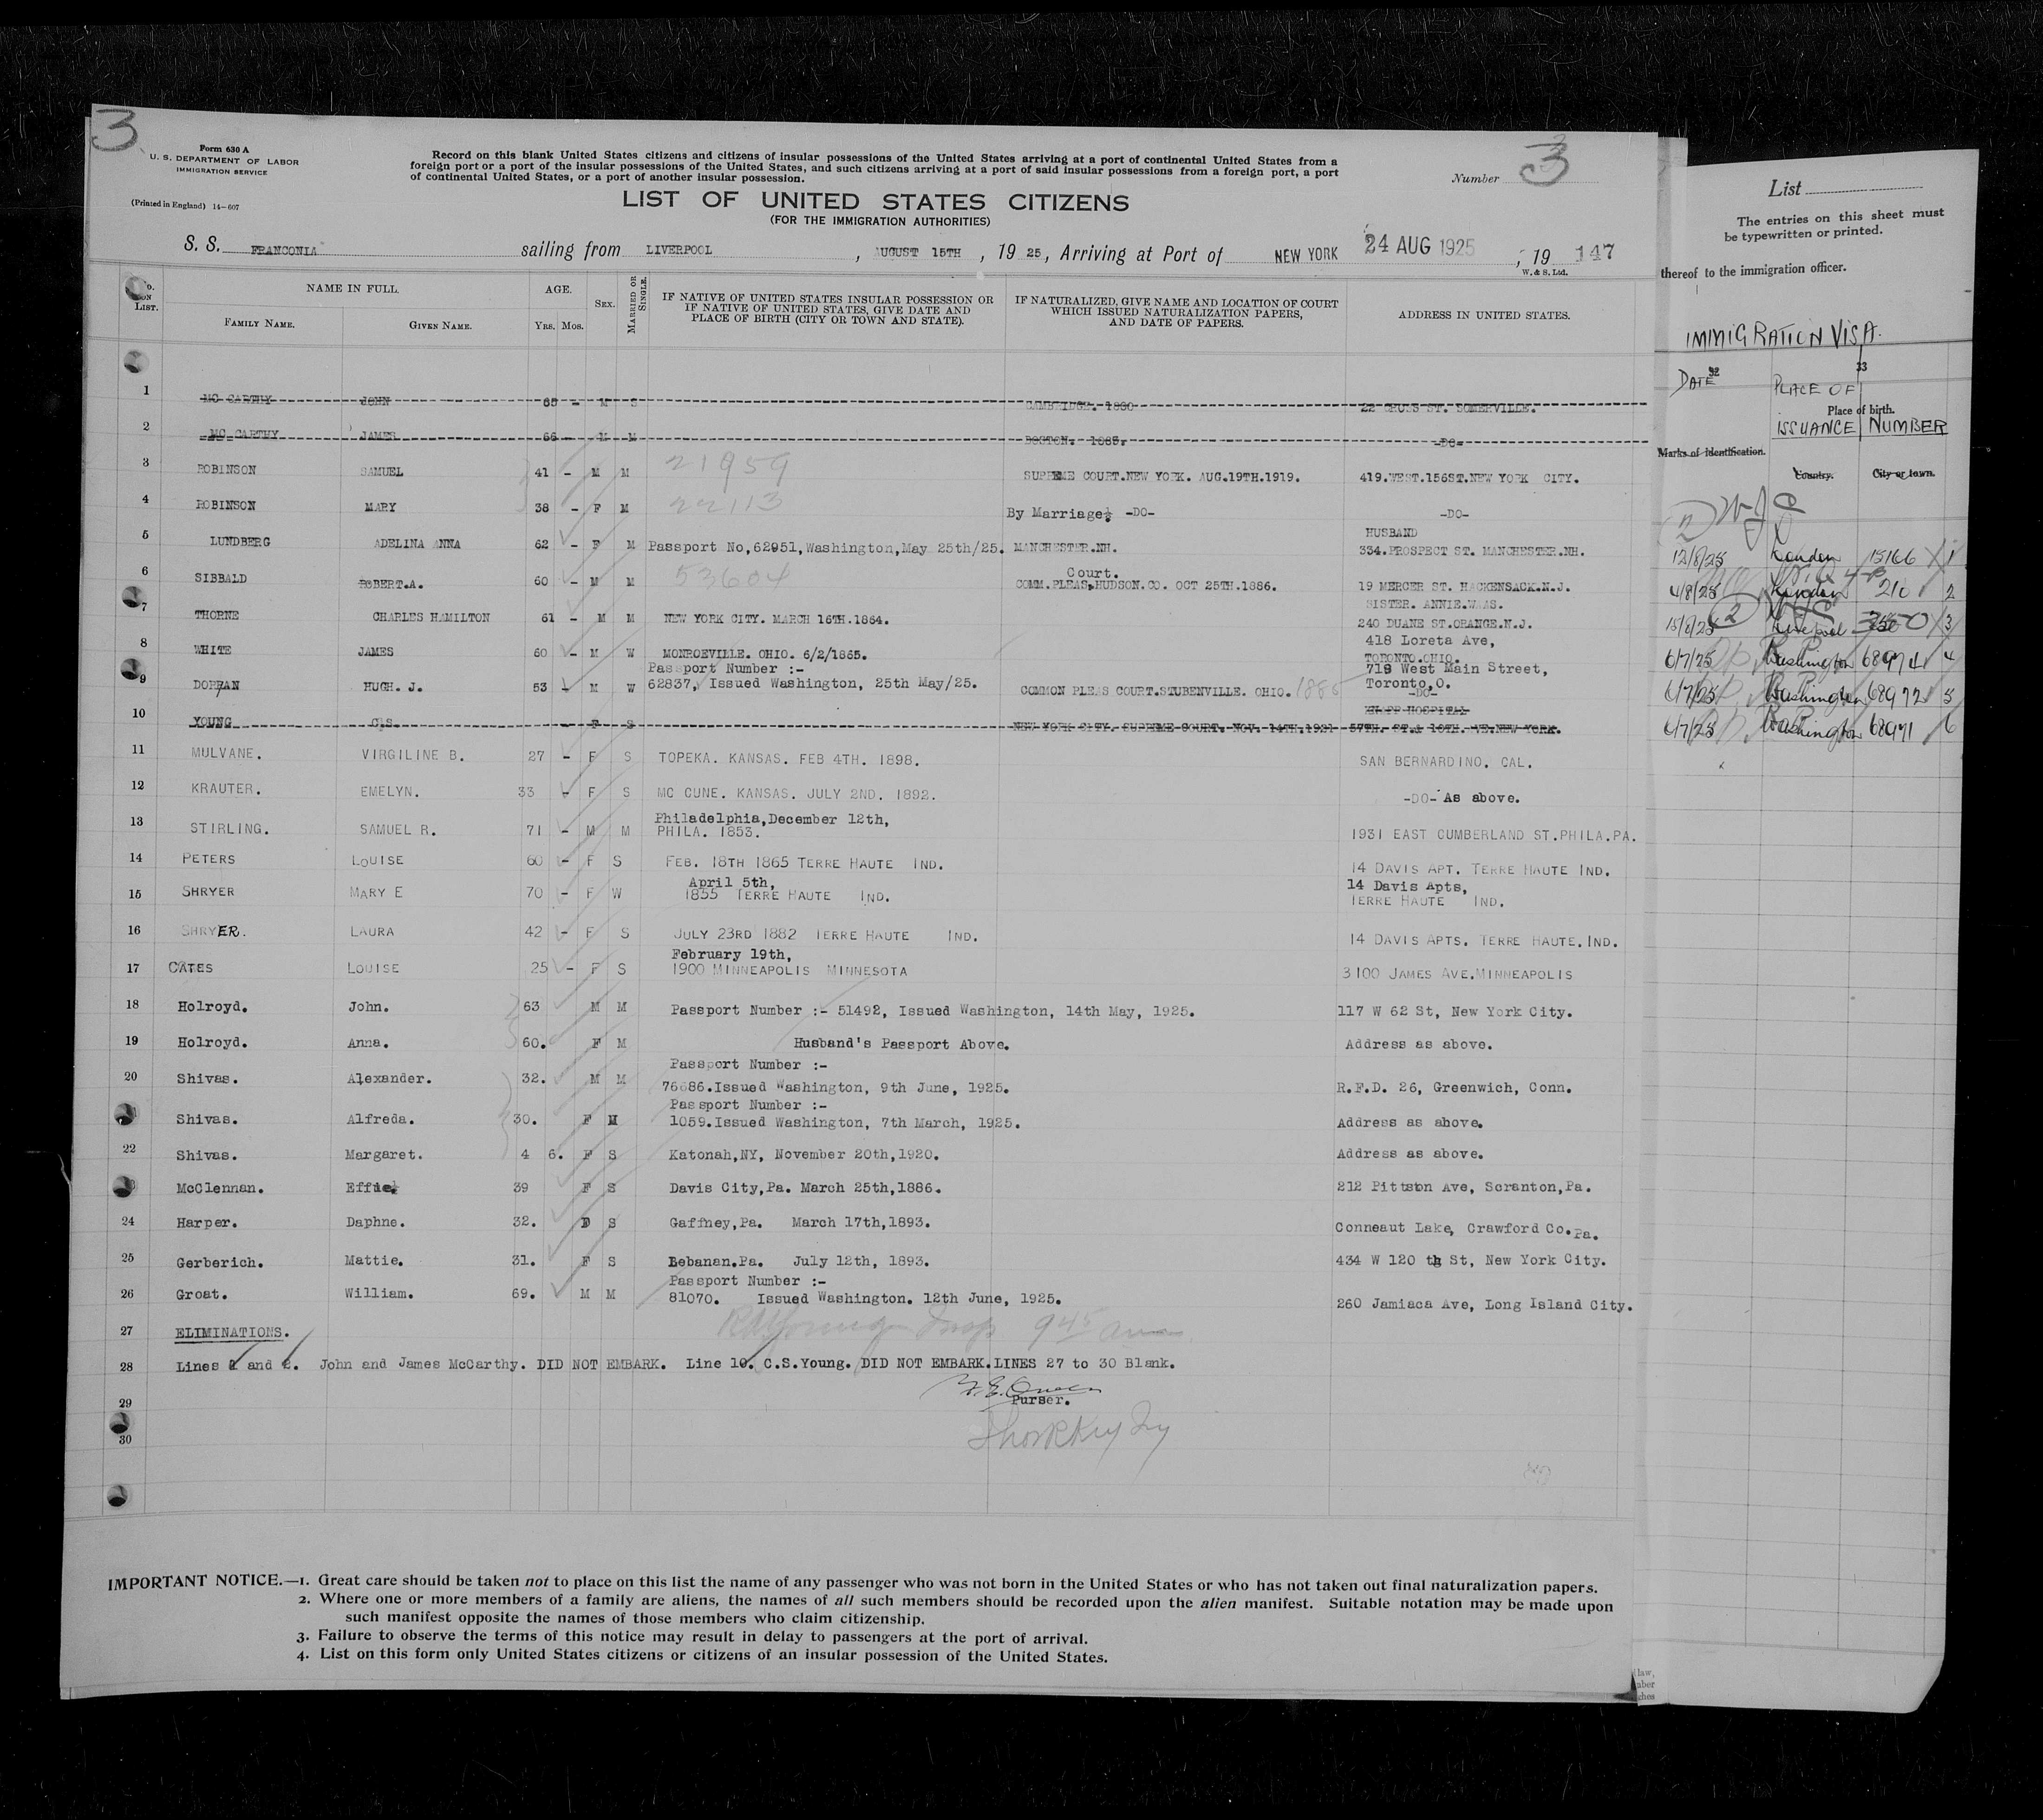 3
Form 630 A
U. S. DEPARTMENT OF LABOR
IMMIGRATION SERVICE
(Printed in England) 14—607
Record on this blank United States citizens and citizens of insular possessions of the United States arriving at a port of continental United States from a
foreign port or a port of the insular possessions of the United States, and such citizens arriving at a port of said insular possessions from a foreign port, a port
of continental United States, or a port of another insular possession.
Number 3
LIST OF UNITED STATES CITIZENS
(FOR THE IMMIGRATION AUTHORITIES)
S. S. FRANCONIA sailing from LIVERPOOL, AUGUST 15TH, 1925, Arriving at Port of NEW YORK 24 AUG 1925, 19 147
W. & S. Ltd.
No. on List. NAME IN FULL. AGE. SEX. MARRIED OR SINGLE. IF NATIVE OF UNITED STATES INSULAR POSSESSION OR IF NATIVE OF UNITED STATES, GIVE DATE AND PLACE OF BIRTH (CITY OR TOWN AND STATE). IF NATURALIZED, GIVE NAME AND LOCATION OF COURT WHICH ISSUED NATURALIZATION PAPERS, AND DATE OF PAPERS. ADDRESS IN UNITED STATES.
FAMILY NAME. GIVEN NAME. Yrs. Mos.
1 MC CARTHY JOHN 65 - M S CAMBRIDGE. 1880 22 CROSS ST. SOMERVILLE.
2 MC CARTHY JAMES 66 - M M BOSTON. 1885. -DO-
3 ROBINSON SAMUEL 41 - M M 21959 SUPREME COURT.NEW YORK. AUG.19TH.1919. 419.WEST.156ST.NEW YORK CITY.
4 ROBINSON MARY 38 - F M 22113 By Marriage. -DO- -DO-
HUSBAND
5 LUNDBERG ADELINA ANNA 62 - F M Passport No,62951,Washington,May 25th/25. MANCHESTER.NH. 334.PROSPECT ST. MANCHESTER.NH.
Court.
6 SIBBALD ROBERT.A. 60 - M M 53604 COMM.PLEAS,HUDSON.CO. OCT 25TH.1886. 19 MERCER ST. HACKENSACK.N.J.
SISTER. ANNIE.WAAS.
7 THORNE CHARLES HAMILTON 61 - M M NEW YORK CITY. MARCH 16TH.1864. 240 DUANE ST.ORANGE.N.J.
418 Loreta Ave,
8 WHITE JAMES 60 - M W MONROEVILLE. OHIO. 6/2/1865. TORONTO.OHIO.
Passport Number :- 719 West Main Street,
9 DORRAN HUGH. J. 53 - M W 62837, Issued Washington, 25th May/25. COMMON PLEAS COURT.STUBENVILLE. OHIO. 1886 Toronto,O.
-DO-
KNAPP HOSPITAL
10 YOUNG C.S. F S NEW YORK CITY. SUPREME COURT. NOV. 14TH.1921 57TH. ST.& 10TH. VE.NEW YORK.
11 MULVANE. VIRGILINE B. 27 - F S TOPEKA. KANSAS. FEB 4TH. 1898. SAN BERNARDINO. CAL.
12 KRAUTER. EMELYN. 33 - F S MC CUNE. KANSAS. JULY 2ND. 1892. -DO- As above.
Philadelphia,December 12th,
13 STIRLING. SAMUEL R. 71 - M M PHILA. 1853. 1931 EAST CUMBERLAND ST.PHILA.PA.
14 PETERS LOUISE 60 - F S FEB. 18TH 1865 TERRE HAUTE IND. 14 DAVIS APT. TERRE HAUTE IND.
April 5th, 14 Davis Apts,
15 SHRYER MARY E 70 - F W 1855 TERRE HAUTE IND. TERRE HAUTE IND.
16 SHRYER. LAURA 42 - F S JULY 23RD 1882 TERRE HAUTE IND. 14 DAVIS APTS. TERRE HAUTE.IND.
February 19th,
17 CATES LOUISE 25 - F S 1900 MINNEAPOLIS MINNESOTA 3100 JAMES AVE.MINNEAPOLIS
18 Holroyd. John. 63 M M Passport Number :- 51492, Issued Washington, 14th May, 1925. 117 W 62 St, New York City.
19 Holroyd. Anna. 60. F M Husband's Passport Above. Address as above.
Passport Number :-
20 Shivas. Alexander. 32. M M 76686.Issued Washington, 9th June, 1925. R.F.D. 26, Greenwich, Conn.
Passport Number :-
Shivas. Alfreda. 30. F M 1059.Issued Washington, 7th March, 1925. Address as above.
22 Shivas. Margaret. 4 6. F S Katonah,NY, November 20th,1920. Address as above.
McClennan. Effie. 39 F S Davis City,Pa. March 25th,1886. 212 Pittston Ave, Scranton,Pa.
24 Harper. Daphne. 32. F S Gaffney,Pa. March 17th,1893. Conneaut Lake, Crawford Co.Pa.
25 Gerberich. Mattie. 31. F S Lebanan.Pa. July 12th, 1893. 434 W 120 th St, New York City.
Passport Number :-
26 Groat. William. 69. M M 81070. Issued Washington. 12th June, 1925. 260 Jamiaca Ave, Long Island City.
27 ELIMINATIONS.
945
28 Lines 1 and 2. John and James McCarthy. DID NOT EMBARK. Line 10. C.S.Young. DID NOT EMBARK.LINES 27 to 30 Blank.
29 Purser.
30
IMPORTANT NOTICE.—1. Great care should be taken not to place on this list the name of any passenger who was not born in the United States or who has not taken out final naturalization papers.
2. Where one or more members of a family are aliens, the names of all such members should be recorded upon the alien manifest. Suitable notation may be made upon
such manifest opposite the names of those members who claim citizenship.
3. Failure to observe the terms of this notice may result in delay to passengers at the port of arrival.
4. List on this form only United States citizens or citizens of an insular possession of the United States.
List
The entries on this sheet must
be typewritten or printed.
thereof to the immigration officer.
IMMIGRATION VISA.
32 33
DATE PLACE OF
Place of birth.
ISSUANCE NUMBER
Marks of identification.
Country. City or town.
12/8/25 London 15166 1
4/8/25 London 210 2
15/8/25 Liverpool 350 3
6/7/25 Washington 68974 4
6/7/25 Washington 68972 5
6/7/25 Washington 68971 6
law,
aber
ghes